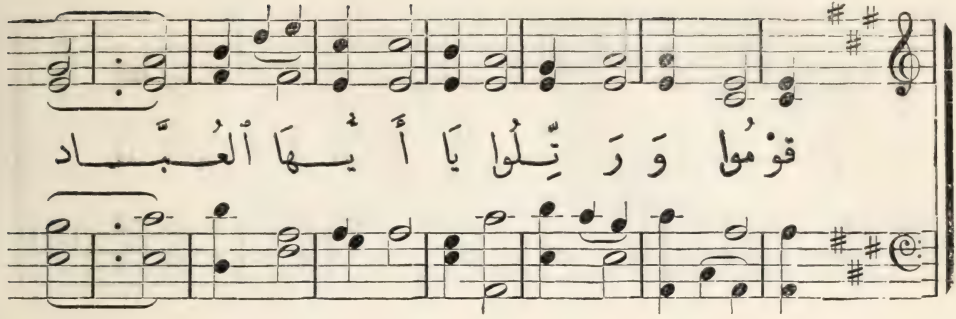 قوْ مُوا وَ رَ تِّــلُوا يَا أَ يُّــهَا ٱلْعُــبَّــــاد